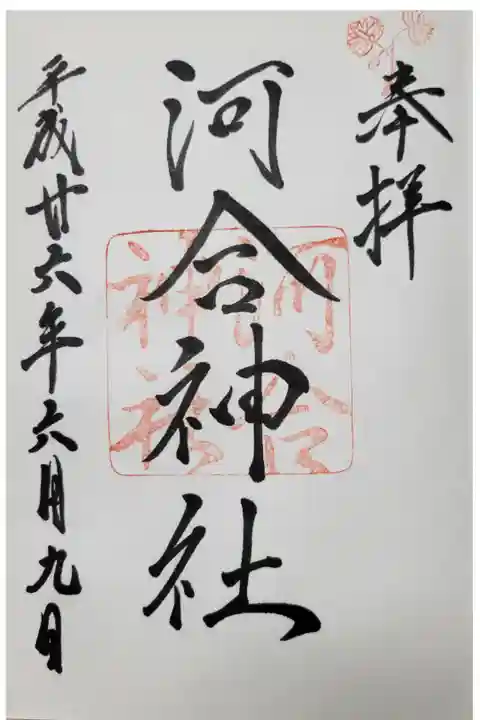 奉拝
河合神社
河合神社
平成廿六年六月九日